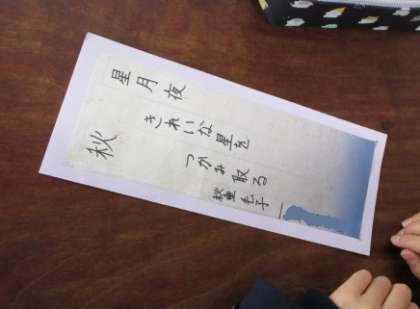 秋
星月夜
きれいな星を
つかみ取る